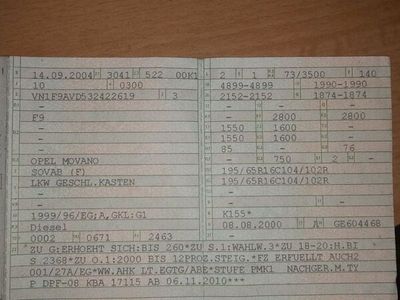 14.09.2004 3041 522 00K1 2 1 73/3500 140
10 0300 4899-4899 1990-1990
VN1F9AVD532422619 3 2152-2152 1874-1874
- - -
F9 - 2800 2800
- 1550 1600 -
- 1550 1600 -
- 85 - 76
- - 750 2 -
OPEL MOVANO 195/65R16C104/102R
SOVAB (F) 195/65R16C104/102R
LKW GESCHL.KASTEN -
- -
1999/96/EG;A,GKL:G1 K155*
Diesel 08.08.2000 GE604468
0002 0671 2463
ZU G:ERHOEHT SICH:BIS 260*ZU S.1:WAHLW.3*ZU 18-20:H.BI
S 2368*ZU O.1:2000 BIS 12PROZ.STEIG.*FZ ERFUELLT AUCH2
001/27A/EG*WW.AHK LT.EGTG/ABE*STUFE PMK1 NACHGER.M.TY
P DPF-08 KBA 17115 AB 06.11.2010***